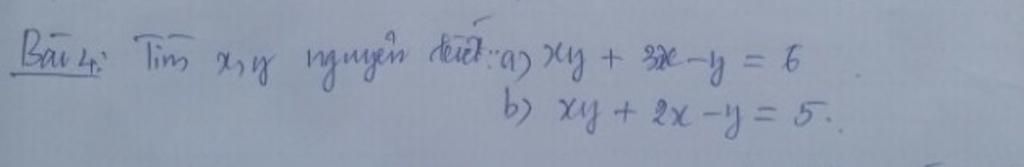 Bài 4: Tìm x, y nguyên biết: a) xy + 3x - y = 6
b) xy + 2x - y = 5.